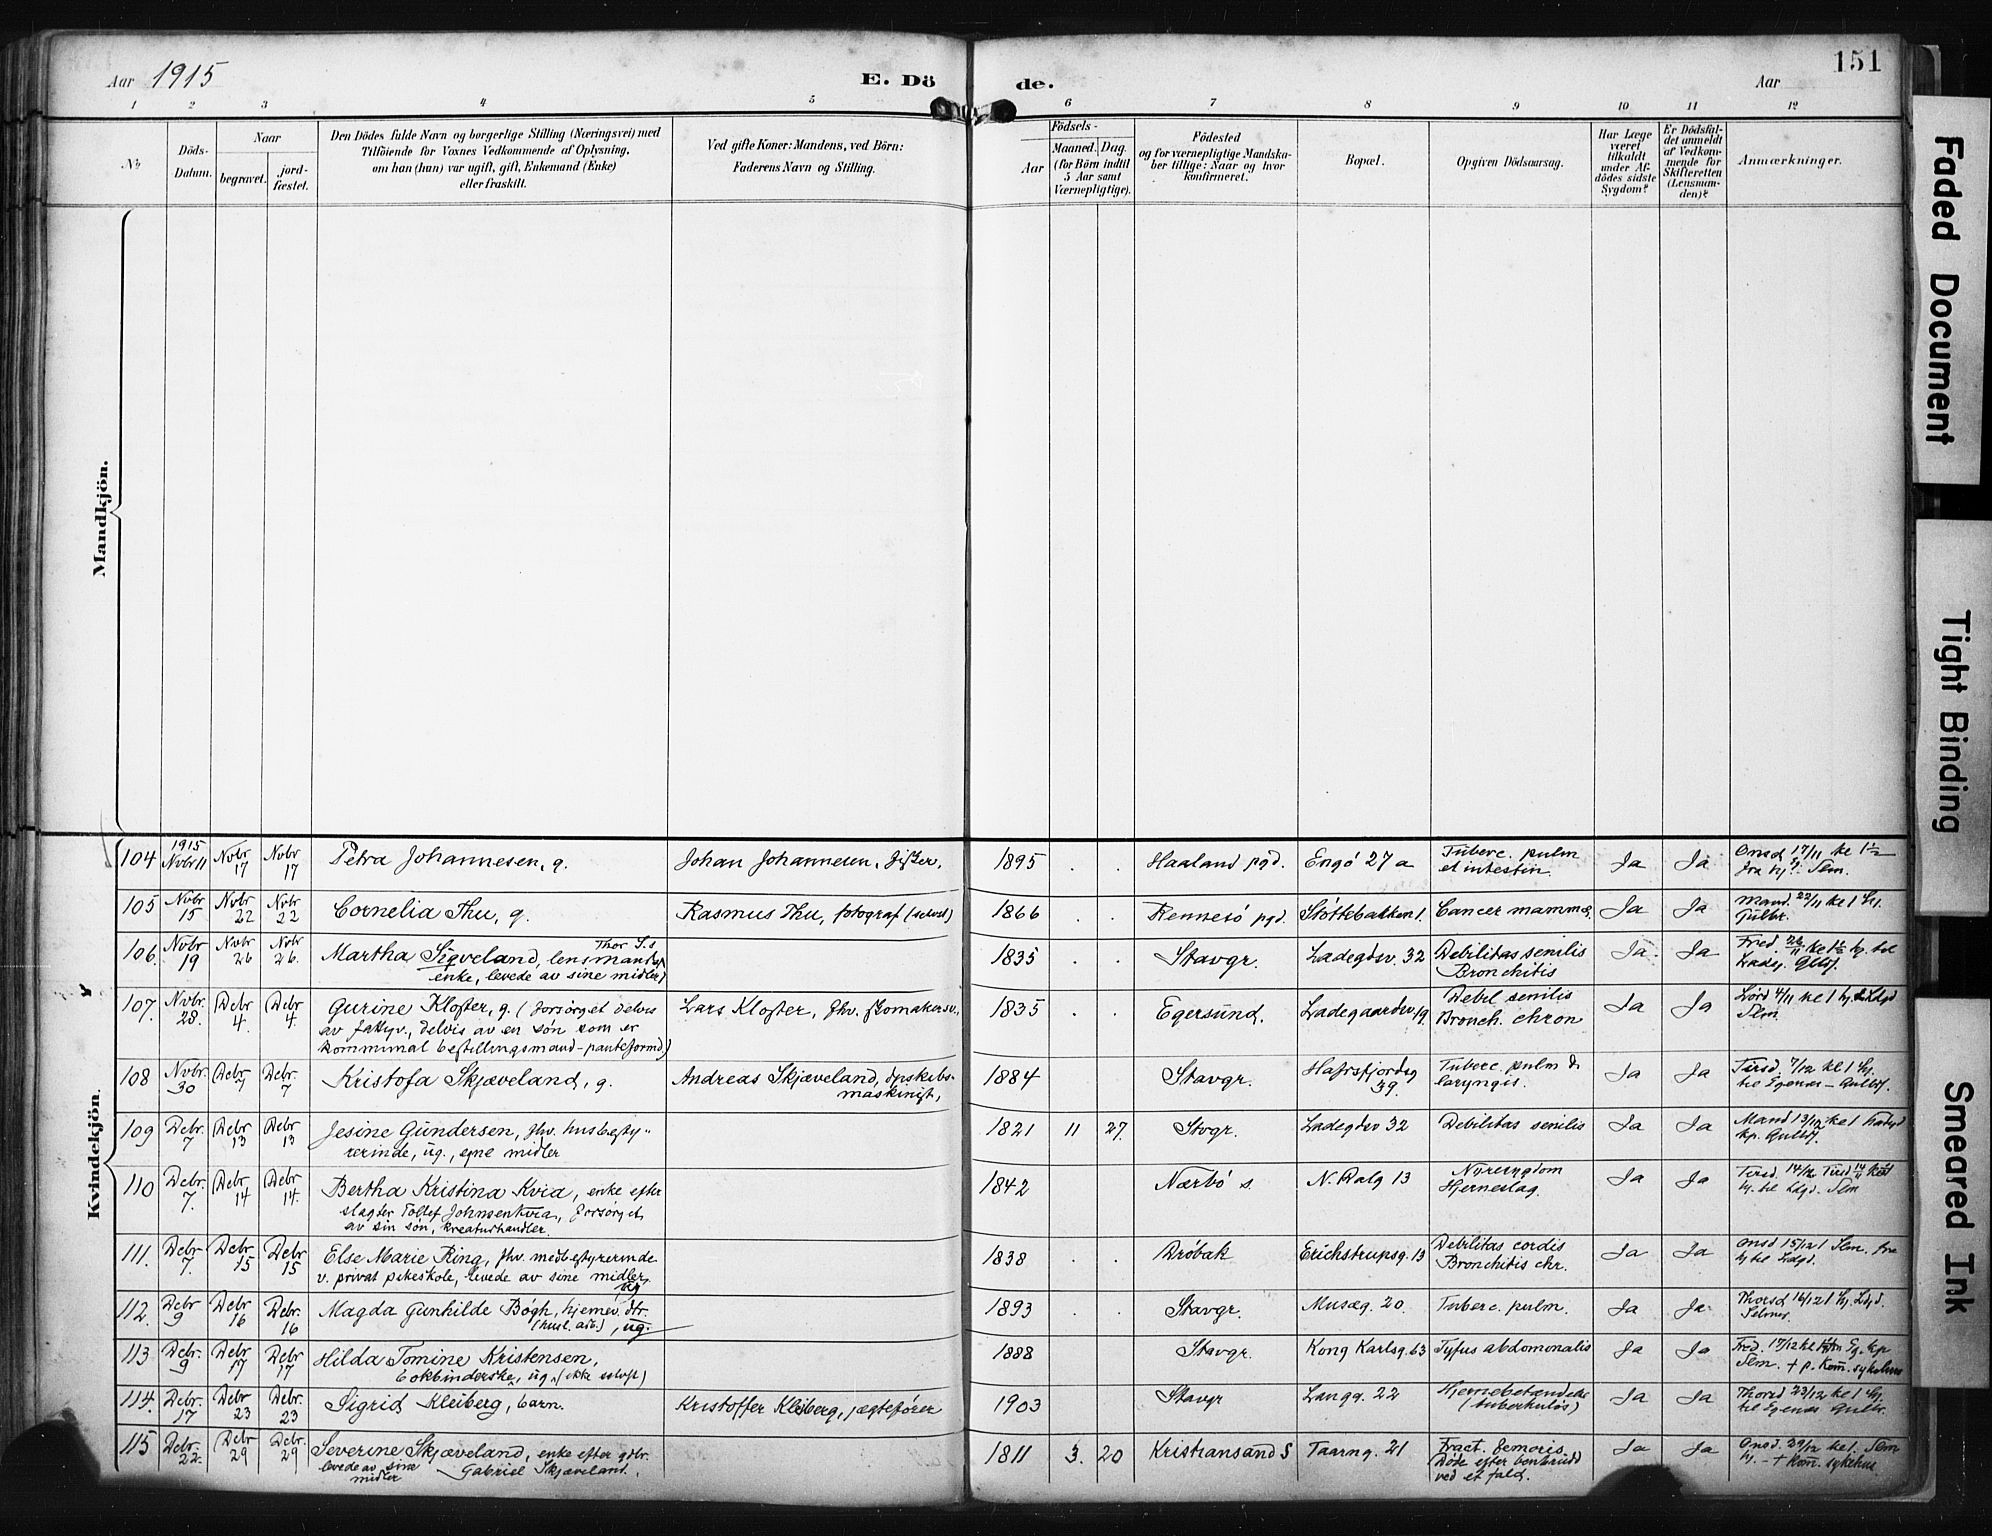 Aar 1915
E. Dö
de.
Aar
151
1 2 3 4 5 6 7 8 9 10 11 12
No
Döds-
Datum.
Naar
begravet.
jord-
fæstet.
Den Dödes fulde Navn og borgerlige Stilling (Næringsvei) med
Tilföiende for Voxnes Vedkommende af Oplysning,
om han (hun) var ugift, gift, Enkemand (Enke)
eller fraskilt.
Ved gifte Koner: Mandens, ved Börn:
Faderens Navn og Stilling.
Födsels-
Aar
Maaned. Dag.
(for Börn indtil
5 Aar samt
Værnepligtige).
Födested
og for værnepligtige Mandska-
ber tillige: Naar og hvor
konfirmeret.
Bopæl.
Opgiven Dödsaarsag.
Har Læge
været
tilkaldt
under Af-
dödes sidste
Sygdom?
Er Dödsfal-
det anmeldt
af Vedkom-
mende for
Skifteretten
(Lensman-
den)?
Anmærkninger.
Mandkjön.
Kvindekjön.
104 1915 Nvbr 11 Nvbr 17 Nvbr 17 Petra Johannesen, g. Johan Johannesen, fisker, 1895 . . Haaland pgd. Engö 27 a Tuberc. pulm et intestin. Ja Ja Onsd 17/11 kl 1½
105 Nvbr 15 Nvbr 22 Nvbr 22 Cornelia Thu, g. Rasmus Thu, fotograf (selvst) 1866 . . Rennesö pgd. Støttebakken 1. Cancer mammæ. Ja Ja Mand. 22/11 kl 1
106. Nvbr 19 Nvbr 26 Nvbr 26. Martha Sigveland, lensmand Thor S.s
enke, levede av sine midler) 1835 . . Stavgr. Ladegdsv. 32 Debilitas senilis
Bronchitis Ja Ja Fred 26/11 kl 1½
107. Nvbr. 28. Debr 4. Debr 4. Gurine Kloster, g. (forsörget delvis
av fattgv., delvis av en sön som er
kommunal bestillingsmand-panteformd.) Lars Kloster, fhv. skomakersv., 1835 . . Egersund. Ladegaardsv 19. Debil senilis
Bronch. chron Ja Ja Lörd 4/11 kl 1
108 Nvbr. 30 Debr 7 Debr. 7 Kristofa Skjæveland, g. Andreas Skjæveland, dpskibs-
maskinist, 1884 . . Stavgr. Hafrsfjordsg 39. Tuberc. pulm &
laryngis. Ja Ja Tirsd. 7/12 kl 1
109 Debr. 7 Debr 13 Debr 13 Jesine Gundersen, fhv. husbesty-
rerinde, ug., egne midler 1821 11 27. Stvgr. Ladegdsv 32 Debilitas senilis Ja Ja Mand 13/12 kl 1
110 Debr. 7. Debr 14 Debr 14. Bertha Kristina Kvia, enke efter
slagter Tollef Johnsen Kvia, forsörget
av sin sön, kreaturhandler. 1842 . . Nærbö s. N. Dalg 13 Nyresygdom
Hjerneslag. Ja Ja Tirsd. 14/12
111. Debr 7. Debr 15 Debr 15 Else Marie Ring, fhv. medbestyrerinde
v. privat pikeskole, levede av sine midler, ug 1838 . . Dröbak Erichstrupsg. 13 Debilitas cordis
Bronchitis chr. Ja Ja Onsd 15/12 1 Slm.
112. Debr 9 Debr 16 Debr. 16 Magda Gunhilde Bögh, hjemev. dtr.
(husl. arb.), ug. 1893 . . Stavgr. Musæg. 20. Tuberc. pulm. Ja Ja Thorsd 16/12 1
113 Debr. 9 Debr 17 Debr 17 Hilda Tomine Kristensen,
bokbinderske, ug. (ikke selvst) 1888 Stavgr. Kong Karlsg. 63 Tyfus abdominalis Ja Ja Fred. 17/12
Slm. + p. Kom. sykehus
114. Debr. 17 Debr 23 Debr 23 Sigrid Kleiberg, barn. Kristoffer Kleiberg, jægtefører 1903 Stavgr Langg. 22 Hjernebetændelse
(tuberkuløs) Ja Ja Thorsd 23/12 kl 1
115 Debr. 22. Debr 29 Debr. 29 Severine Skjæveland, enke efter gdbr.
levede av sine midler Gabriel Skjæveland. 1811 3. 20 Kristiansand S Taarng. 21 Fract. femoris
Döde efter benbrudd
ved et fald. Ja Ja Onsd. 29/12 kl 1. Slm
+ Kom. sykehus
Faded Document
Tight Binding
Smeared Ink